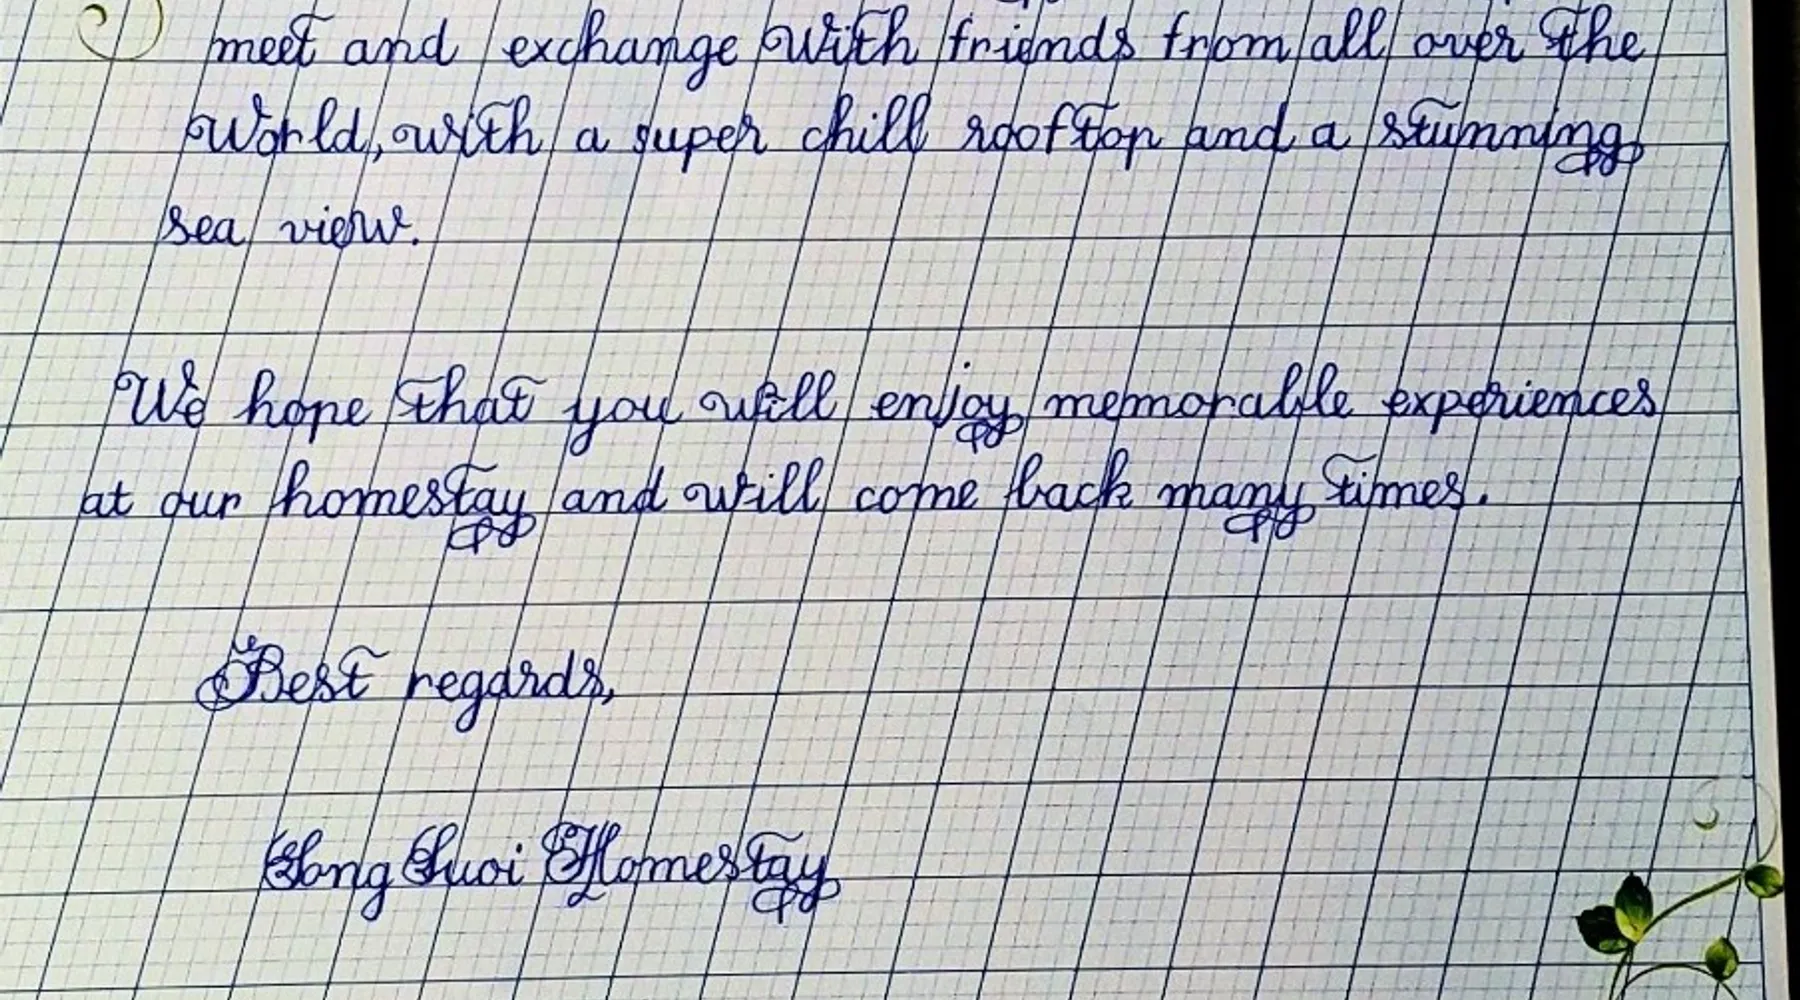 meet and exchange with friends from all over the
World, with a super chill rooftop and a stunning
sea view.
We hope that you will enjoy memorable experiences
at our homestay and will come back many times.
Best regards,
Song Suoi Homestay